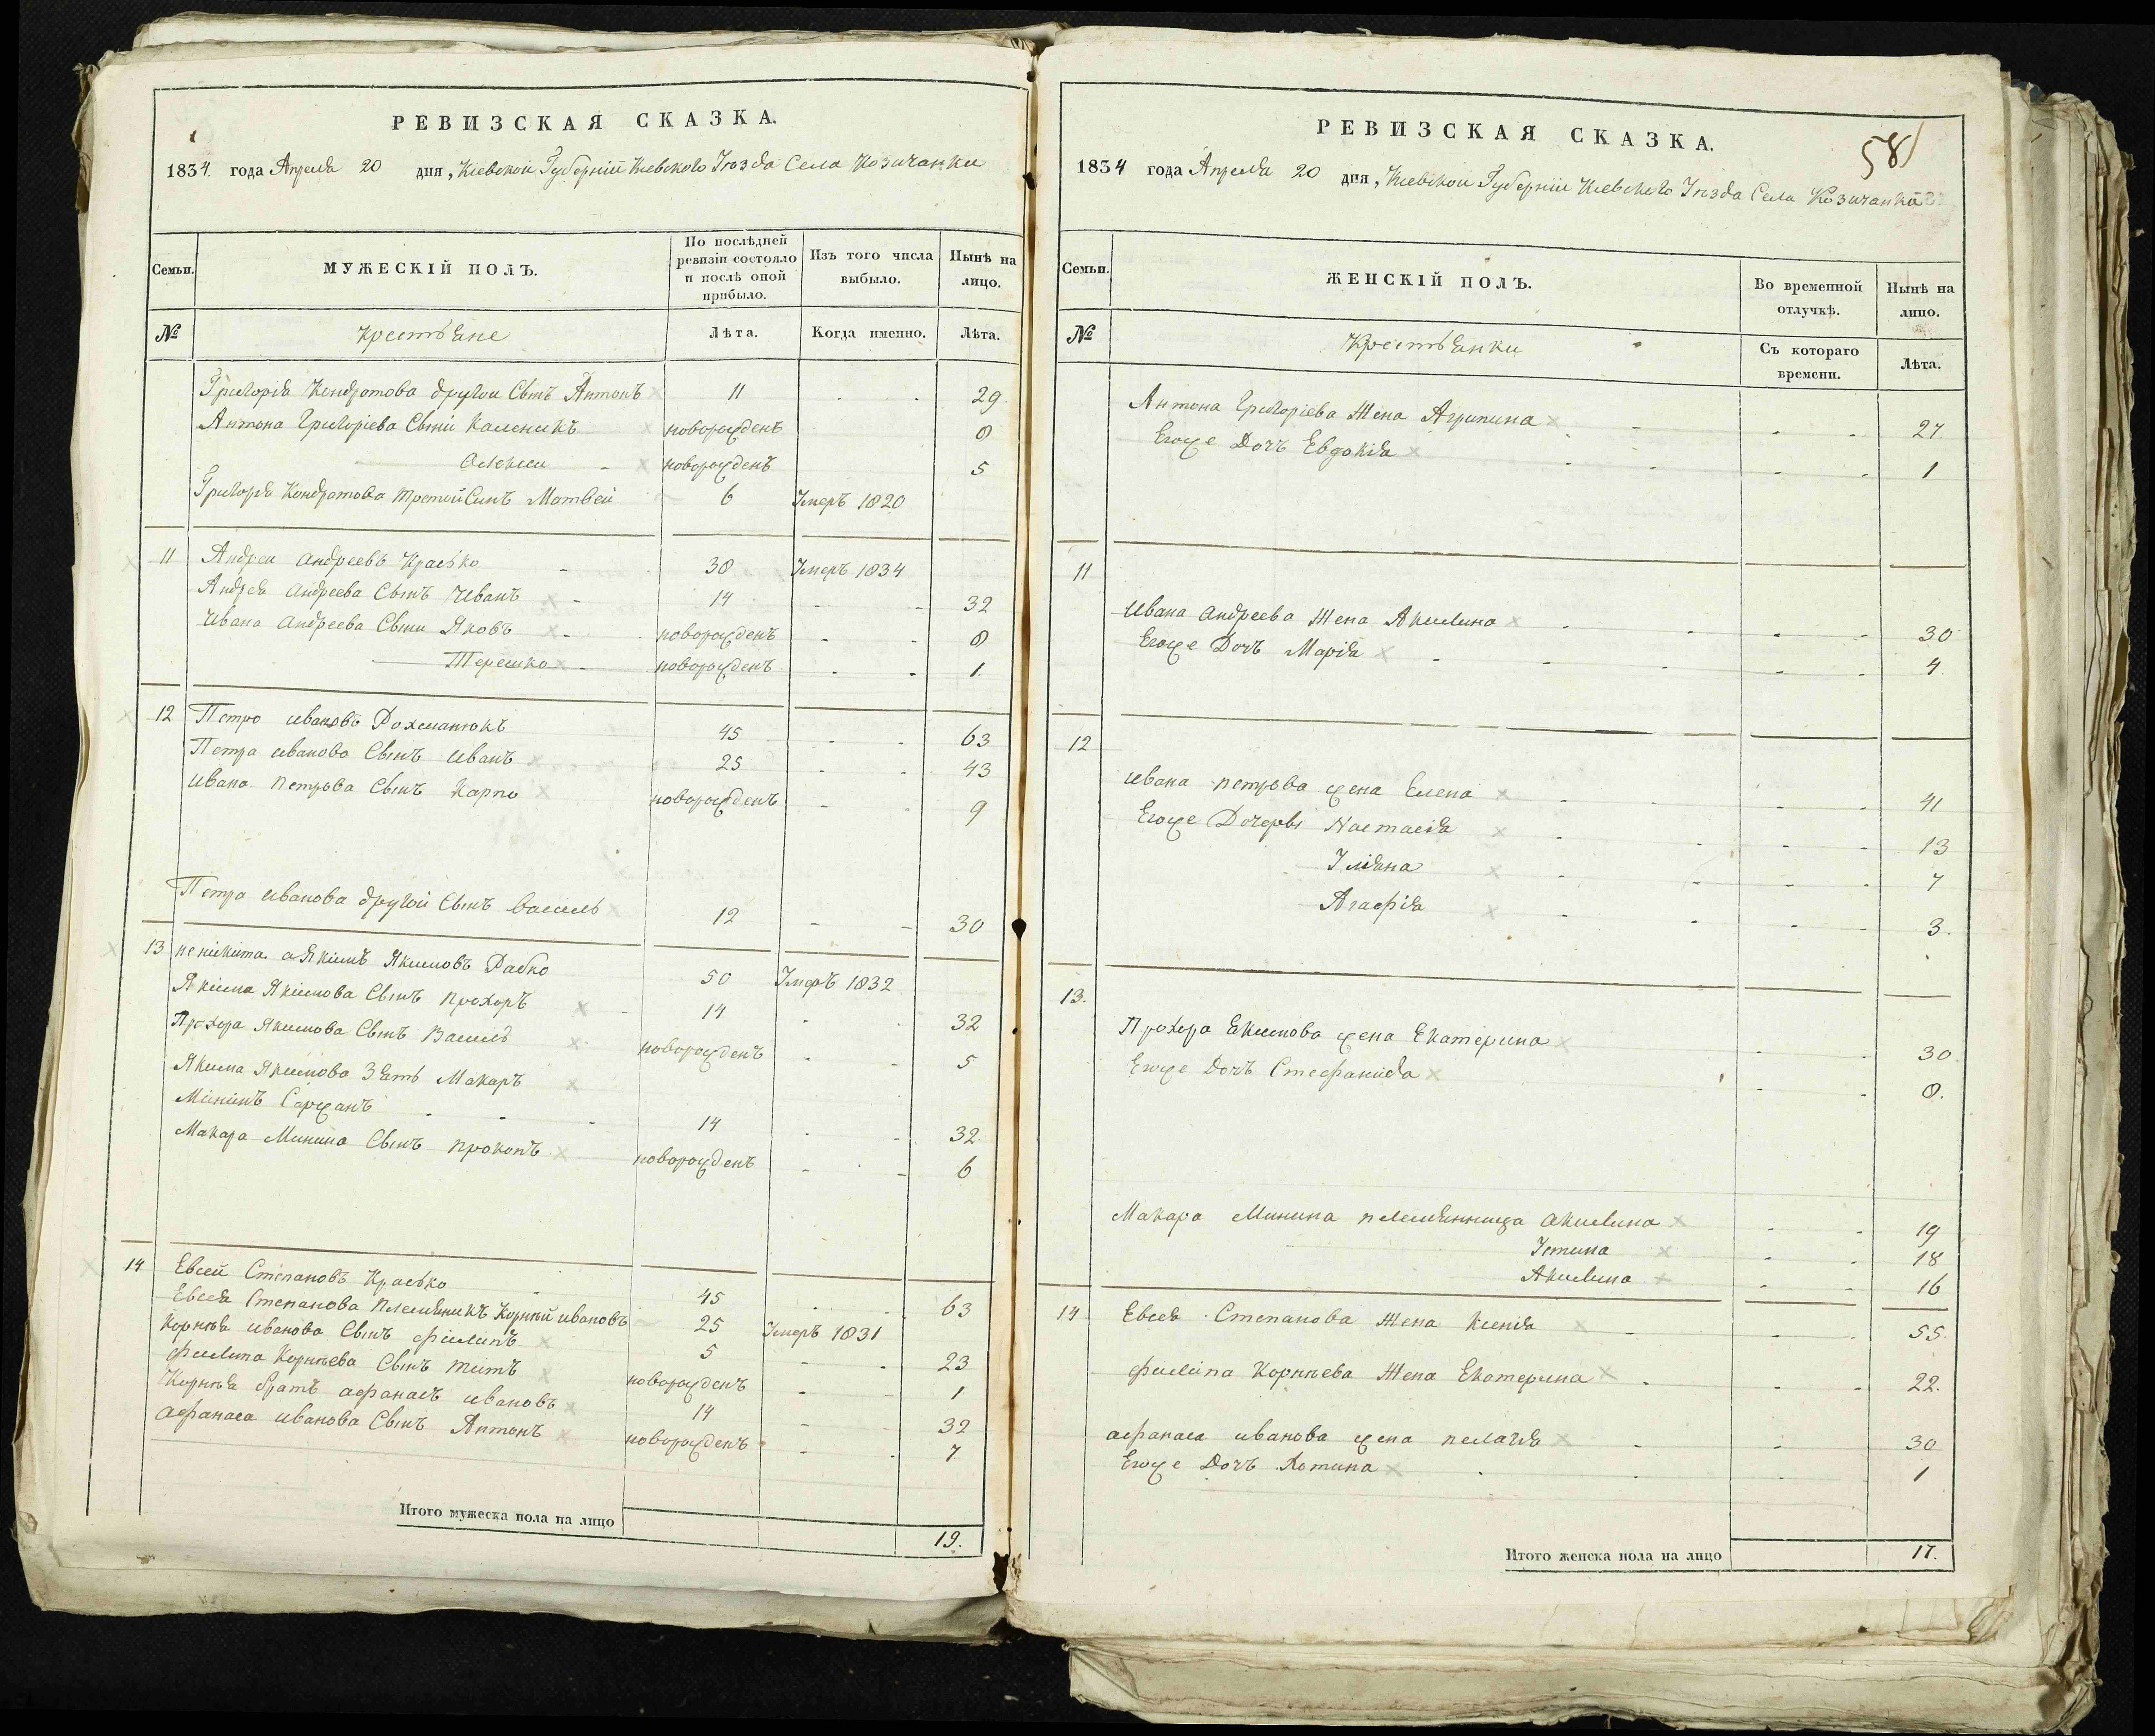 РЕВИЗСКАЯ СКАЗКА.
1834. года Апреля 20 дня, Кіевской Губерніи Кіевского Уѣзда Села Козичанки
Семьи.
МУЖЕСКІЙ ПОЛЪ.
По послѣдней ревизіи состояло и послѣ оной прибыло.
Изъ того числа выбыло.
Нынѣ на лицо.
№
Крестьяне
Лѣта.
Когда именно.
Лѣта.
Григорія Кондратова другои Сынъ Антонъ 11 29
Антона Григоріева Сыни Каленикъ новорожденъ 8
Олекси новорожденъ 5
Григорія Кондратова третейСинъ Матвей 6 Умеръ 1820
11 Андреи андреевъ Красько 38 Умеръ 1834
Андрея андреева Сынъ Иванъ 14 32
Ивана андреева Сыни Яковъ новорожденъ 8
Терешко новорожденъ 1.
12 Петро ивановъ Дохманюкъ 45 63
Петра иванова Сынъ иванъ 25 43
ивана петрова Сынъ Карпо новорожденъ 9
Петра иванова другой Сынъ василь 12 30
13 Якимовъ 50 Умеръ 1832
Якима Якимова Сынъ прохоръ 14 32
Прохора Якимова Сынъ Василь новорожденъ 5
Якима Якимова Зять Макаръ
Мининъ Сержанъ 14 32.
Макара Минина Сынъ прокопъ новорожденъ 6
14 Евсей Степановъ Красько 45 63
Евсея Степанова племяникъ Корнѣй ивановъ 25 Умеръ 1831
Корнѣя иванова Сынъ филипъ 5 23
филипа Корнѣева Сынъ титъ новорожденъ 1
Корнѣя братъ афанасъ ивановъ 14 32
афанаса иванова Сынъ Антонъ новорожденъ 7.
Итого мужеска пола на лицо 19.
РЕВИЗСКАЯ СКАЗКА.
58
1834 года Апреля 20 дня, Кіевской Губерніи Кіевского Уѣзда Села Козичанки
Семьи.
ЖЕНСКІЙ ПОЛЪ.
Во временной отлучкѣ.
Нынѣ на лицо.
№
Крестьянки
Съ котораго времени.
Лѣта.
Антона Григоріева Жена Агрипина 27
Егоже Дочъ Евдокія 1
11
ивана андреева Жена Акилина 30
Егоже Дочъ Марія 4
12
ивана петрова жена Елена 41
Егоже Дочеры Настасія 13
Уліяна 7
Агафія 3.
13.
Прохора Екимова жена Екатерина 30.
Егоже Дочъ Стефанида 8.
Макара Минина племянница акилина 19
Устина 18
Акилина 16
14 Евсея Степанова Жена Ксенія 55.
филипа Корнѣева Жена Екатерина 22.
афанаса иванова жена пелагія 30
Егоже Дочъ Хотина 1
Итого женска пола на лицо 17.